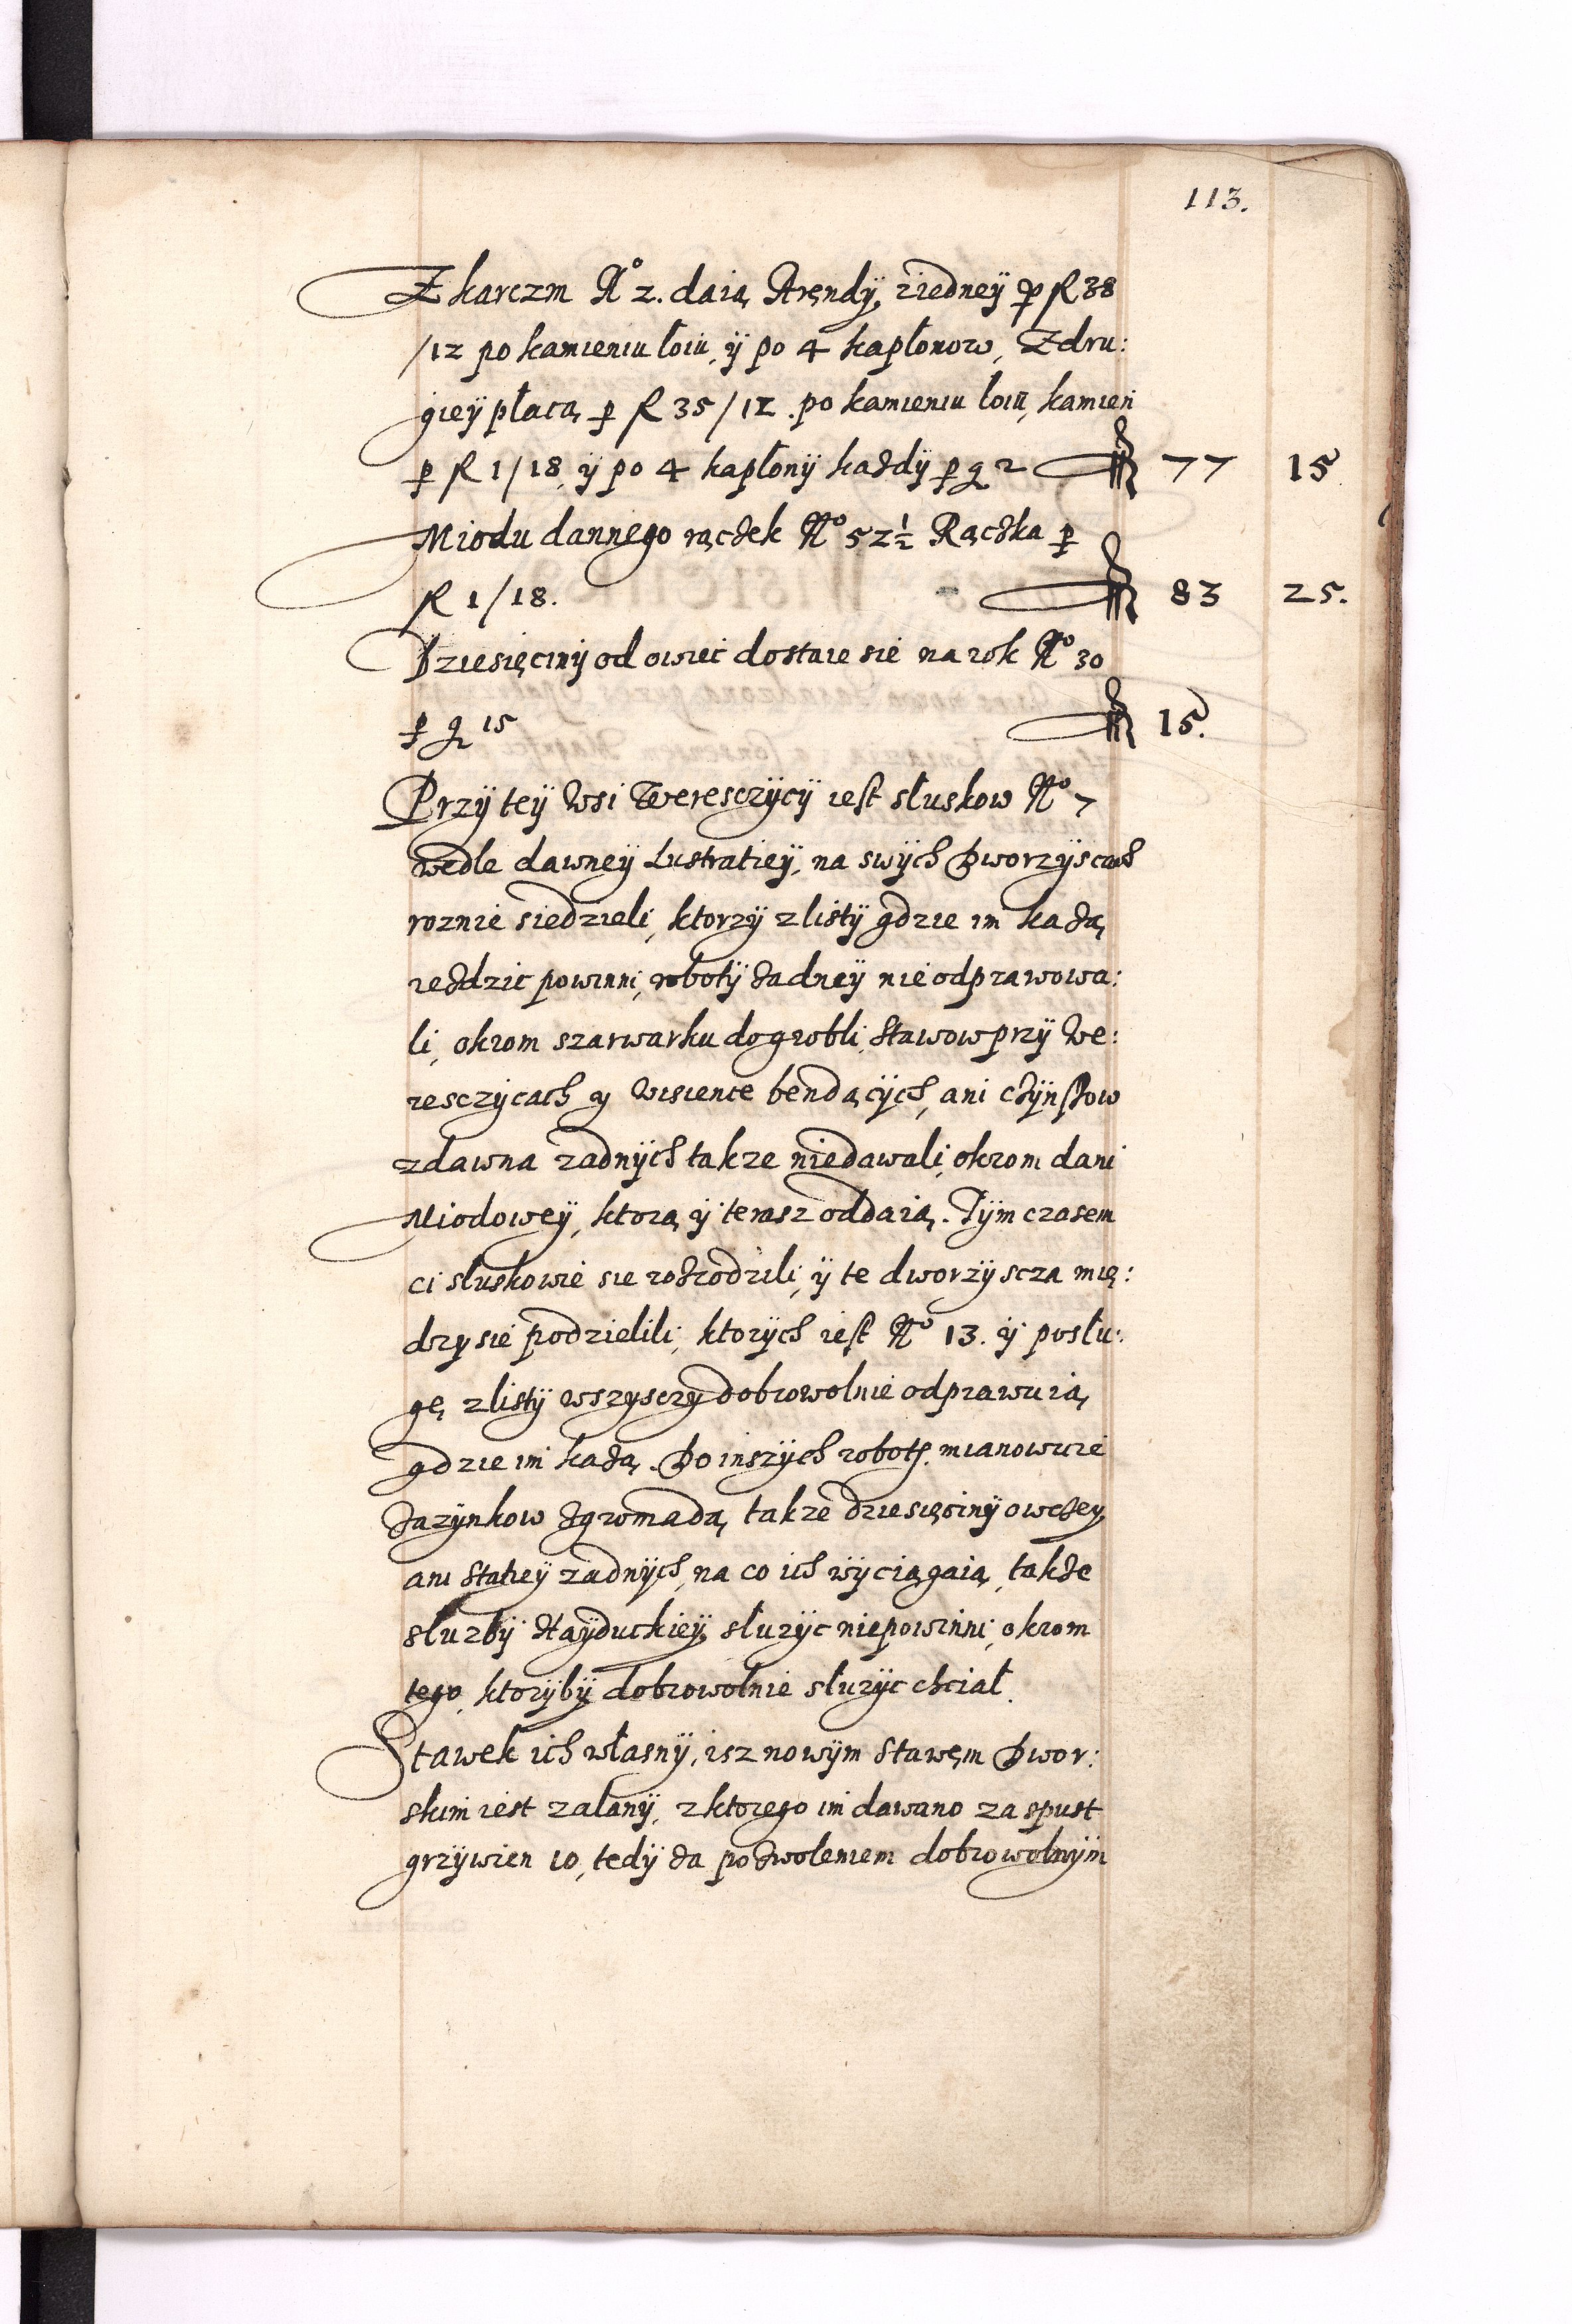 113.
Z karczm No 2. daią Arędy, ziedney per fl 38
/12 po kamieniu łoiu, ÿ po 4 kapłonow, Zdru:
gieÿ płacą per fl 35/12. po kamieniu łoiu, kamień
per fl 1/18, ÿ po 4 kapłonÿ każdÿ per g 2 77 15
Miodu dannego rączek No 52½ Rączka per
fl 1/18. 83 25.
Dziesięcinÿ od owiec dostaie sie na rok No 30
per g 15 15.
Przÿ teÿ Wsi Weresczÿcÿ iest słuskow No 7
wedle dawneÿ Lustratieÿ, na swÿch Dworzÿscach
roznie siedzieli, ktorzÿ z listÿ gdzie im każą,
ieździc powinni, robotÿ żadneÿ nie odprawowa:
li, okrom szarwarku do grobli, Stawow przÿ We:
resczÿcach y Wisience bendącÿch, ani czÿnszow
zdawna zadnÿch takze niedawali, okrom dani
Miodoweÿ, ktorą ÿ terasz oddaią. Tÿm czasem
ci słuskowie sie rozrodzili, ÿ te dworzÿscza mię:
dzy sie podzielili, ktorÿch iest No 13. ÿ posłu:
gę z listÿ wszyscy dobrowolnie odprawuią,
gdzie im każą. Do inszÿch robot, mianowicie
Zazynkow z gromadą, takze dziesięcinÿ owczey,
ani Statieÿ zadnÿch, na co ich wÿciągaią, także
służbÿ Hayduckieÿ, służÿc niepowinni, okrom
tego, ktorÿbÿ dobrowolnie służÿc chciał.
Stawek ich własnÿ, isz nowÿm Stawem Dwor:
skim iest zalanÿ, z ktorego im dawano za spust
grzÿwien 10, tedÿ za pozwoleniem dobrowolnÿm